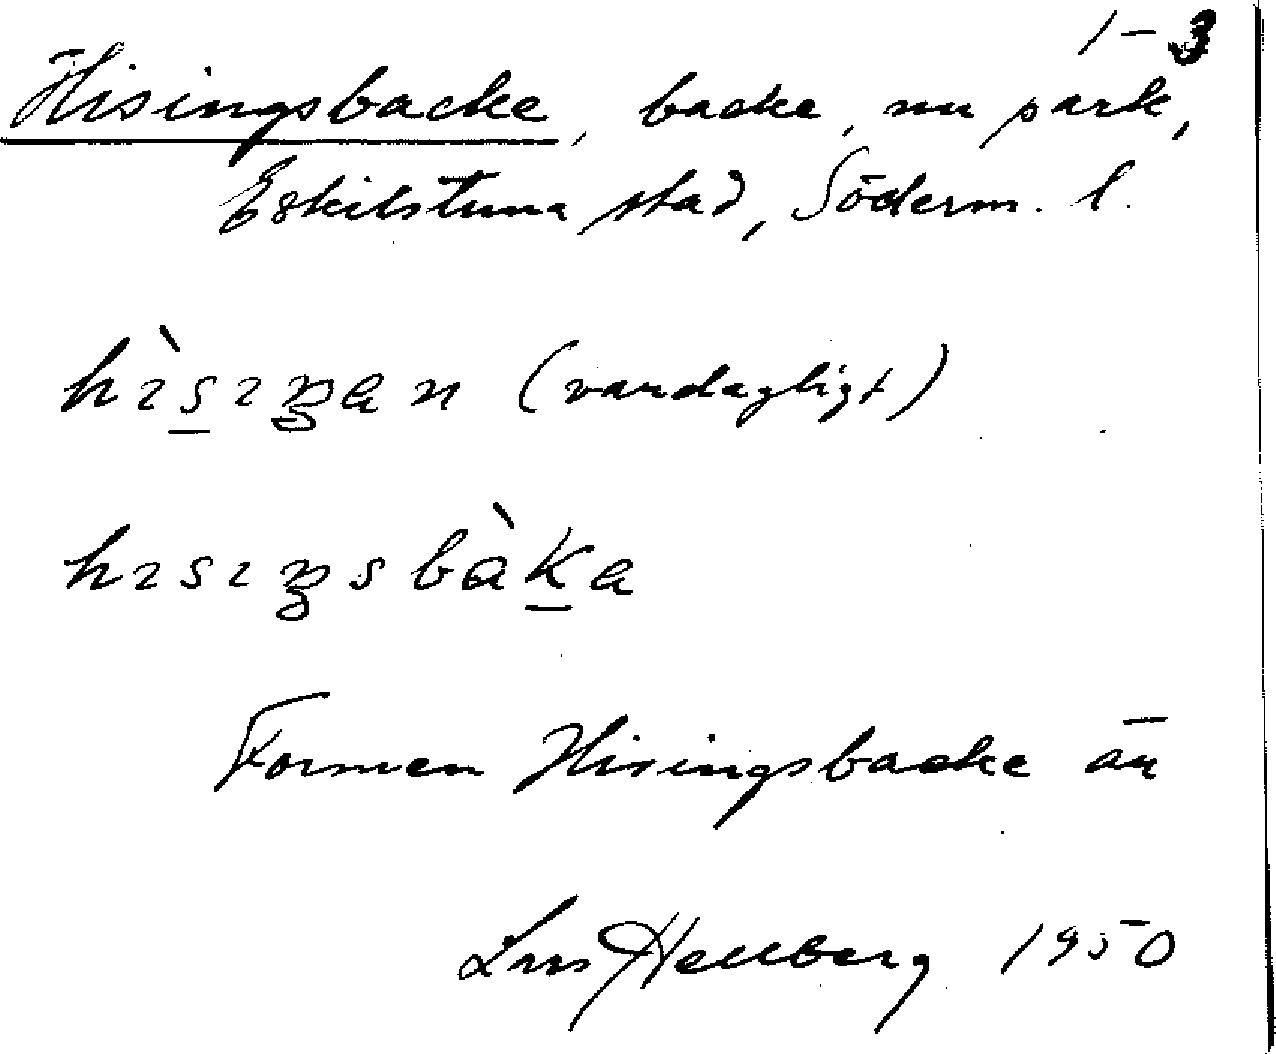 1-3
Hisingsbacke, backe, nu park,
Eskilstuna stad, Söderm. l.
hìsıŋan (vardagligt)
hısıŋsbàka
Formen Hisingsbacke än
Lars Hellberg 1950